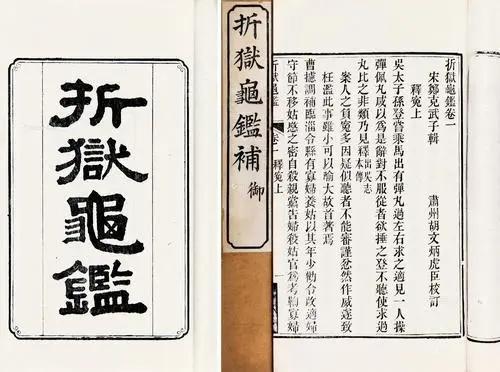 折獄龜鑑
折獄龜鑑補
御
折獄龜鑑卷一
宋鄭克武子輯
肅州胡文炳虎臣校訂
釋冤上
吳太子孫登嘗乘馬出有彈丸過左右求之適見一人操
彈佩丸咸以爲是辭對不服從者欲捶之登不聽使求過
丸比之非類乃見釋出吳志本傳
案人之負冤多因疑似聽者不能審謹忿然作威遂致
枉濫此事雖小可以喻大故首著焉
曹攄調補臨淄令縣有寡婦養姑以其年少勸令改適婦
守節不移姑愍之密自殺親黨告婦殺姑官爲考鞫寡婦
折獄龜鑑
卷一
釋冤上
一